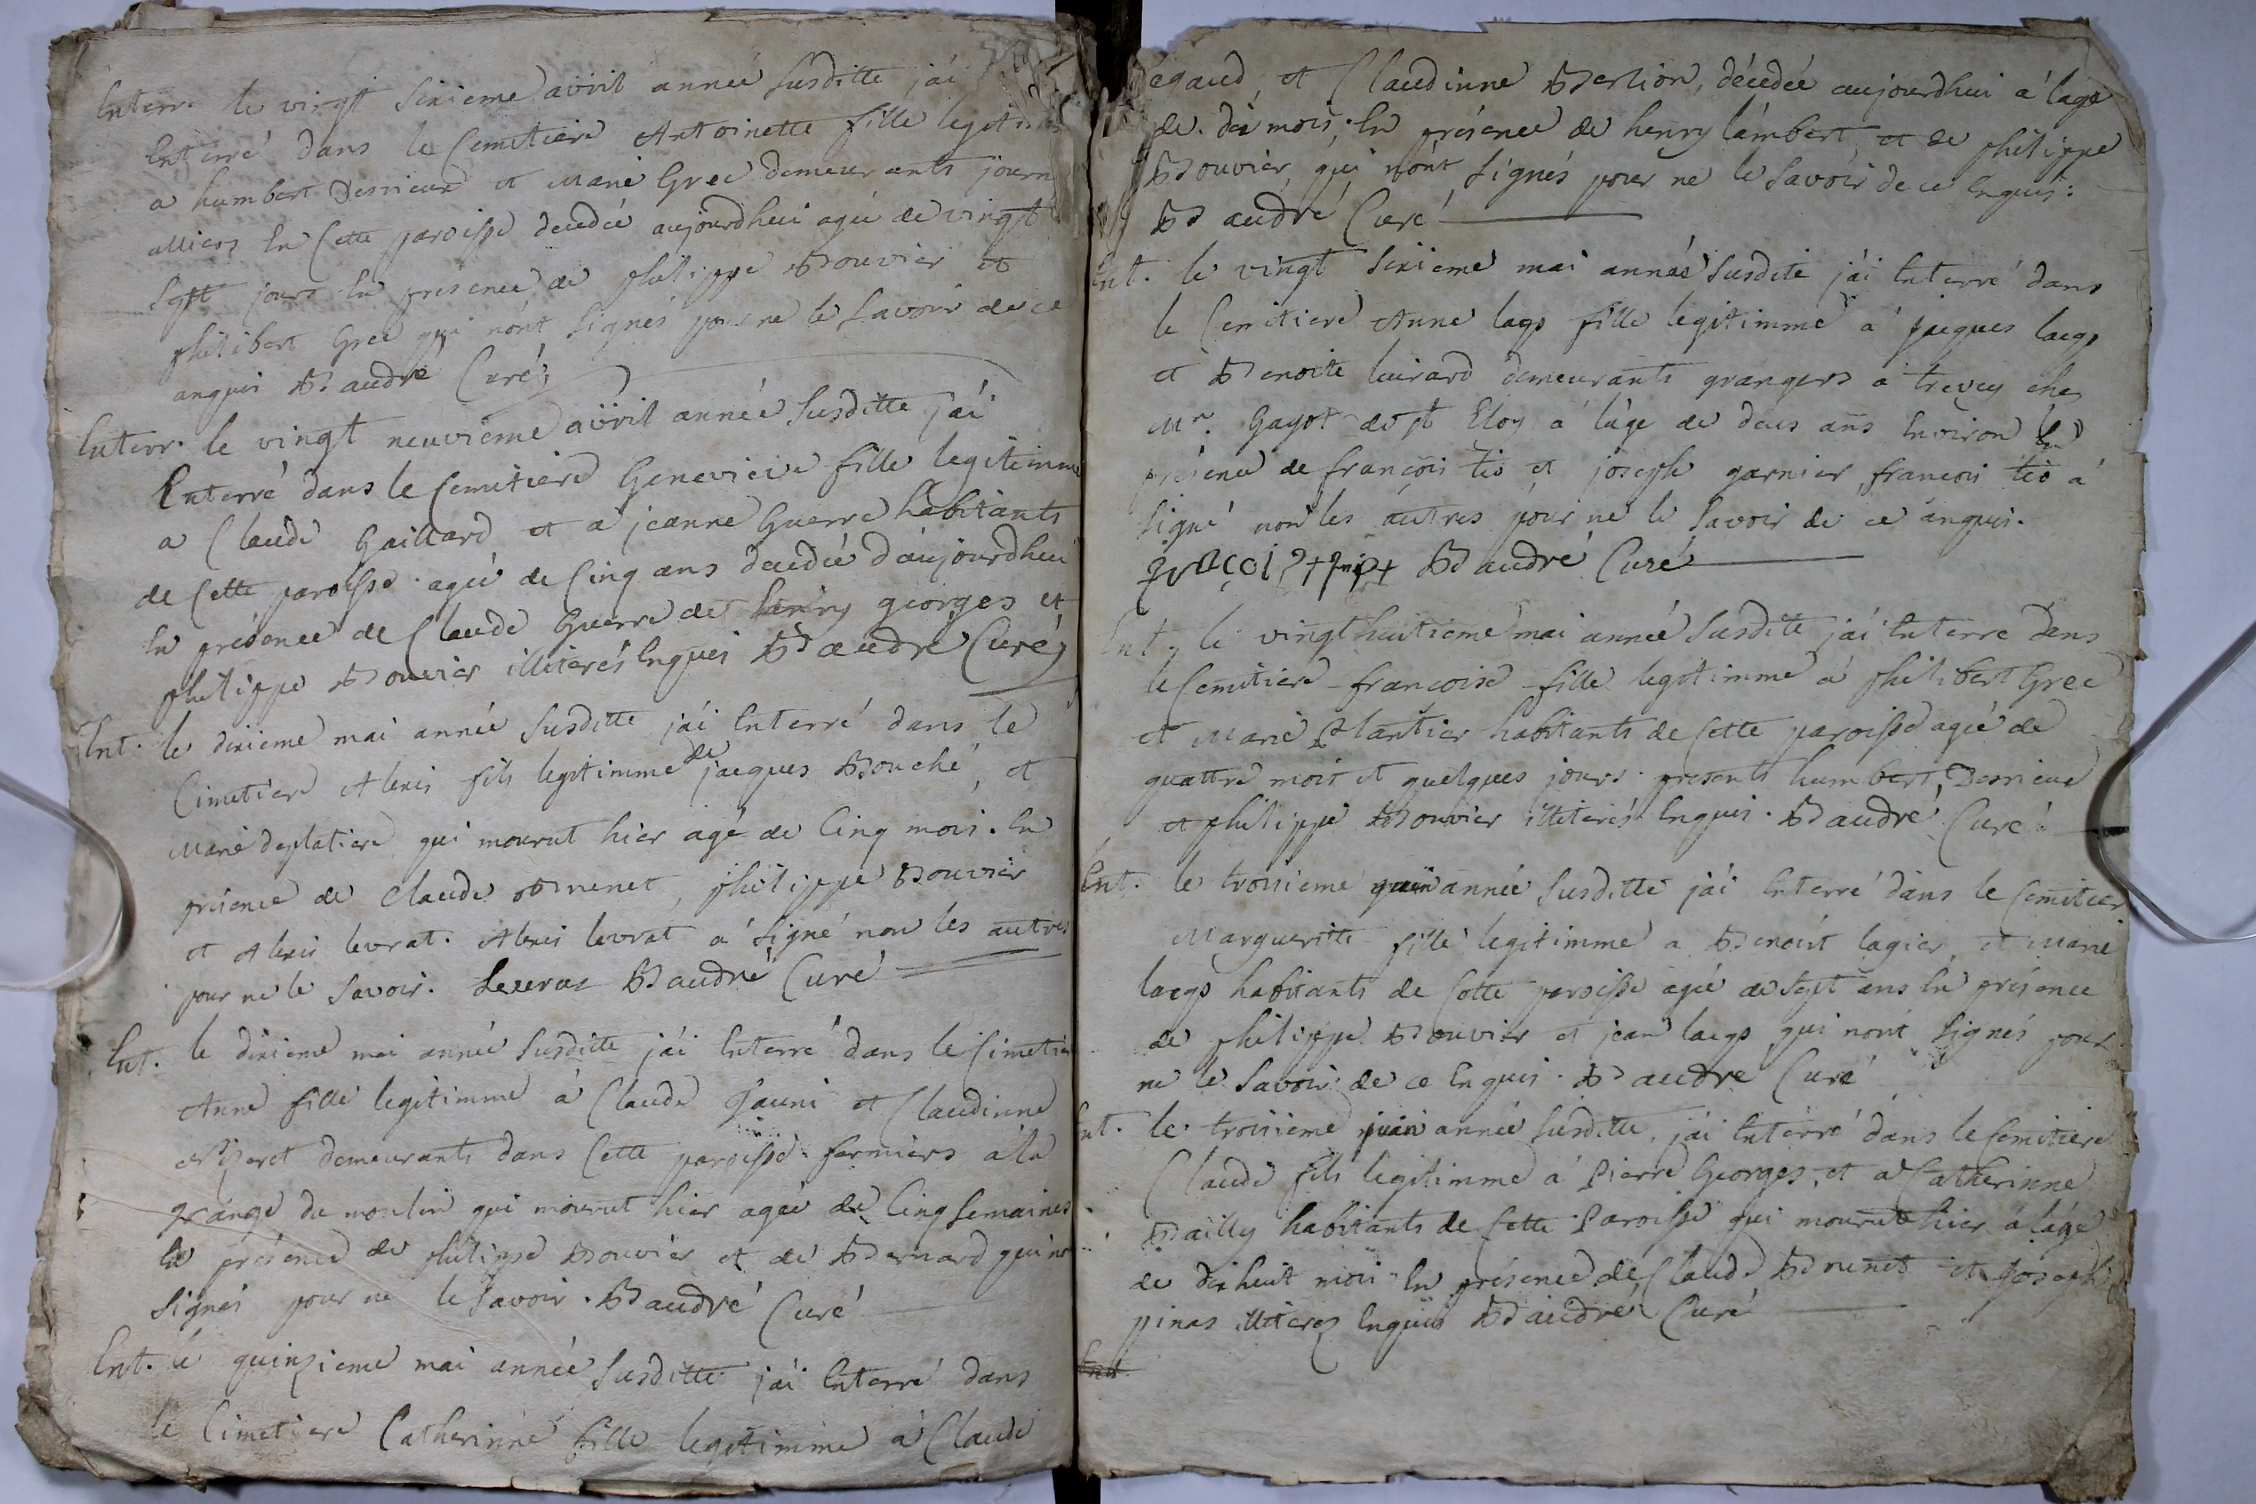 Enterr. le vingt sixieme avvril année susditte j'ai
Enterré dans le Cemetiere Antoinette fille legitimme
a humbert Desrieux et Marie Grec demeurants journ
alliers En Cette paroisse decedée aujourdhui agée de vingt
sept jours En presence de philippe Bouvier et
philibert Grec qui n'ont signés pour ne le savoir de ce
anquis Baudré Curé
Enterr. le vingt neuvieme avvril année susditte j'ai
Enterré dans le Cemetiere Genevieve fille legitimme
a Claude Gaillard et a jeanne Guerre habitants
de Cette paroisse agée de Cinq ans decedée d'aujourdhui
En présence de Claude Guerre de henry georges et
philippe Bouvier illiterés Enquis Baudré Curé
Ent. le dixieme mai année susditte j'ai Enterré dans le
Cimetiere Alexis fils legitimme de jacques Bouché, et
Marie deplatiere qui mourut hier agé de Cinq mois. En
présence de Claude Brunet, philippe Bouvier
et Alexis levrat. Alexis levrat a signé non les autres
pour ne le savoir. Leverat Baudré Curé
Ent. le dixieme mai année susditte j'ai Enterré dans le Cimetie
Anne fille legitimme à Claude Jauni et Claudinne
demeurants dans Cette paroisse fermiers à la
grange du moulin qui mourut hier agée de Cinq semaines
En présence de philippe Bouvier et de Bernard qui nt
signés pour ne le savoir. Baudré Curé
Ent. le quinzieme mai année susditte j'ai Enterré dans
le Cimetiere Catherinne fille legitimme à Claude
egaud, et Claudinne Berlion, décedée aujourdhui á l'age
de dix mois; En présence de henry lámbert et de philippe
Bouvier, qui n'ont signés pour ne le savoir de ce Enquis:
Baudré Curé
Ent. le vingt sixieme mai année susdite j'ai Enterré dans
le Cemitiere Anne lags fille legitimme a jacques lags
et Benoite luirard demeurants grangers à trevey ches
Mr. Gayot de st Eloy à l'age de deux ans Environ En
présence de françois tio et joseph garnier, francois tio à
signé non les autres pour ne le savoir de ce anquis.
Baudré Curé
Ent. le vingthuitieme mai année susdite j'ai Enterré dans
le Cemitiere francoise fille legitimme a philibert Grec
et Marie Plantier habitants de Cette paroisse agée de
quattre mois et quelques jours. presents humbert Desrieux
et philippe Bouvier illiterés Enquis. Baudré Curé
Ent. le troisieme juin année susditte j'ai Enterré dans le Cemitier
Margueritte fille legitimme a Benoit lagier et Marie
lags habitants de Cette paroisse agée de sept ans En présence
de philippe Bouvier et jean lags qui nont signés pour
ne le savoir de ce Enquis. Baudré Curé
Ent. le troisieme juin année susditte, j'ai Enterré dans le Cemitiere
Claude fils legitimme à Pierre Georges, et a Catherinne
Bailly habitants de Cette Paroisse qui mourut hier à l'age
de dix huit mois En présence de Claude Brunet et joseph
pinas illiteres Enquis Baudré Curé
Ent